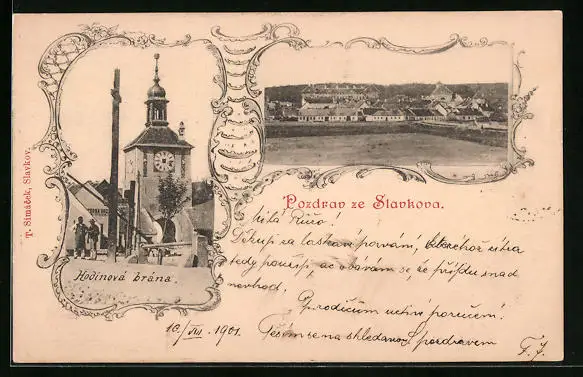 T. Šimáček, Slavkov.
Hodinová brána.
Pozdrav ze Slavkova.
Milá Růžo!
Děkuji za laskavé pozvání, kteréhož zítra
tedy použiji, ač obávám se, že přijdu snad
nevhod.
P. rodičům uctivé poručení!
Těším se na shledanou, pozdravem
F. J.
10./VIII. 1901.